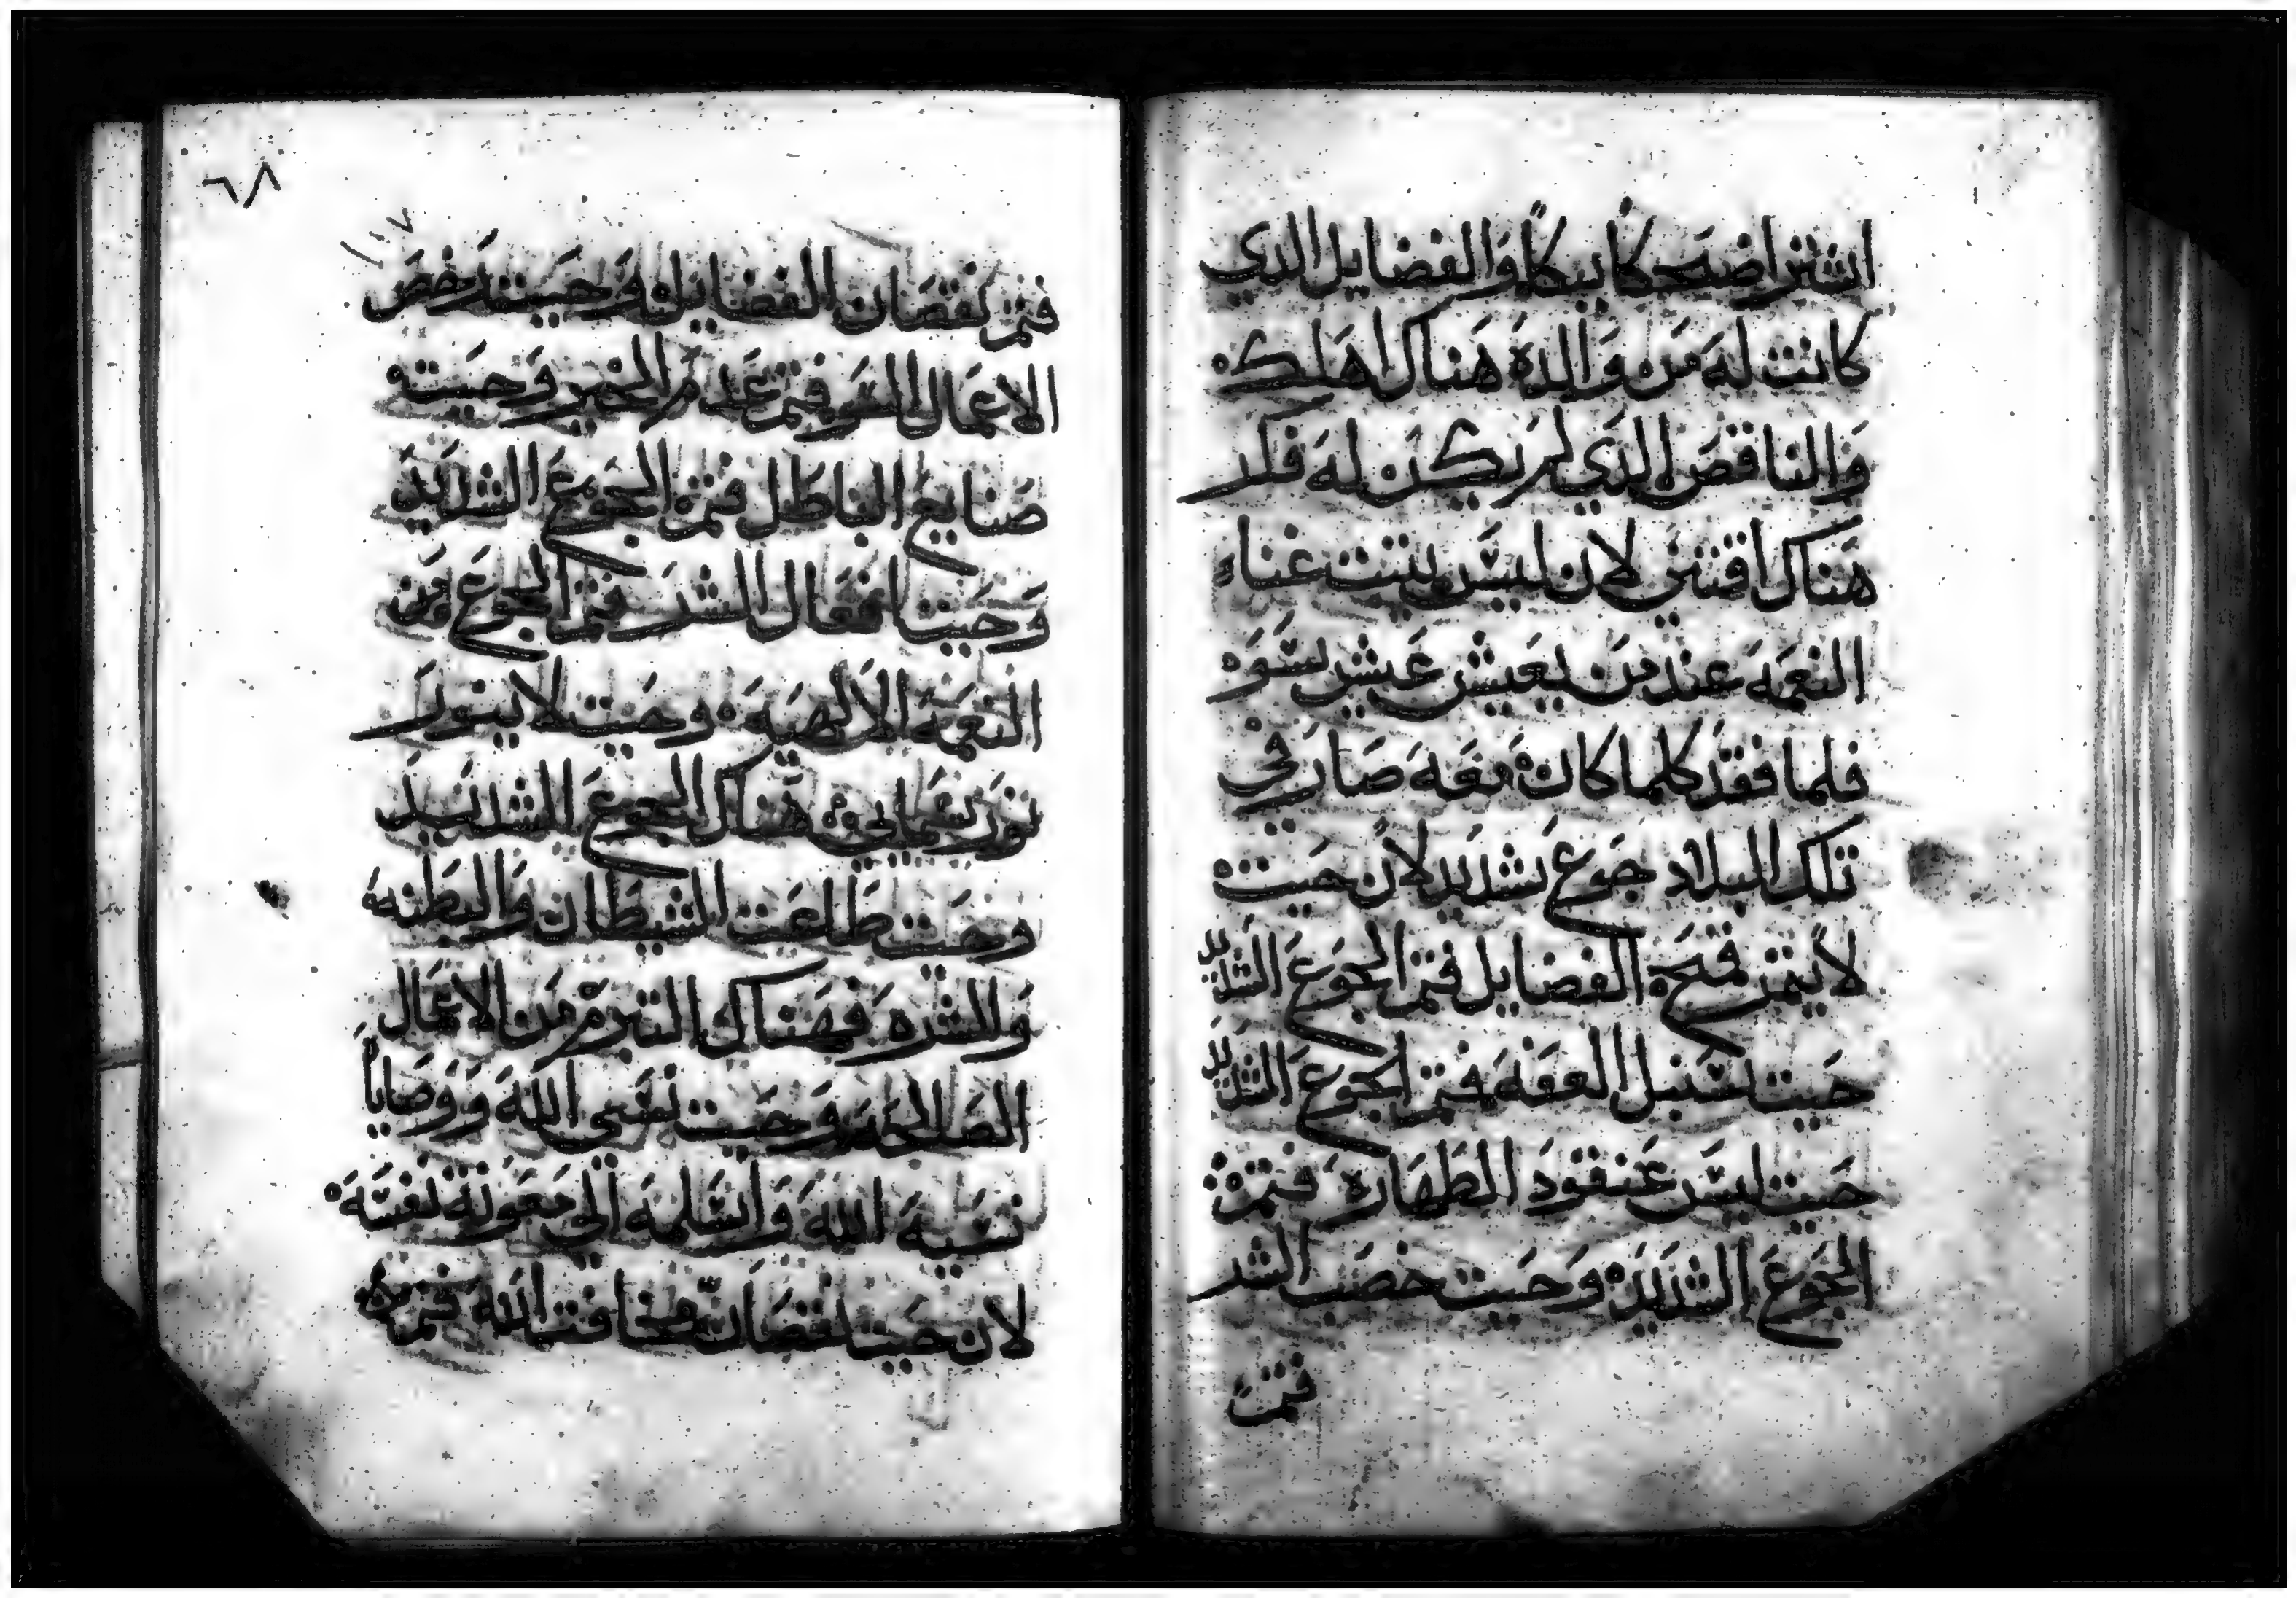 اشترا ضحكا ببكا والفضايل الذي
كانت له من والده هناك اهلك
والناقص الذي لم يكن له فلد
هناك اقتنى لان ليس يتبت غناه
النعمه عند من يعيش عيش سوه
فلما فقد كلما كان معه صار في
تلك البلاد جوع شديد لان حيت
لا يتم قمح الفضايل فتم الجوع الشديد
حيت سنبل العفه فتم الجوع الشديد
حيت ليس عنقود الطهاره فتم
الجوع الشديد وحيت خصب الشر
فتم
٦٨
فتم نقصان الفضايل وحيت رخص
الاعمال السو فتم عدم الخير وحيت
صنايع الباطل فتم الجوع الشديد
وحيت افعال الشر فتم الجوع من
النعمه الالهيه وحيت لا ينور
نور نعمالي هناك الجوع الشديد
وحيت طاعت الشيطان والبطنه
والشره فهناك التبرم من الاعمال
الصالحه وحيت نسي الله ووصاياه
نسيه الله واسلمه الي معونة نفسه
لان حيت نقصان مخافت الله فتم